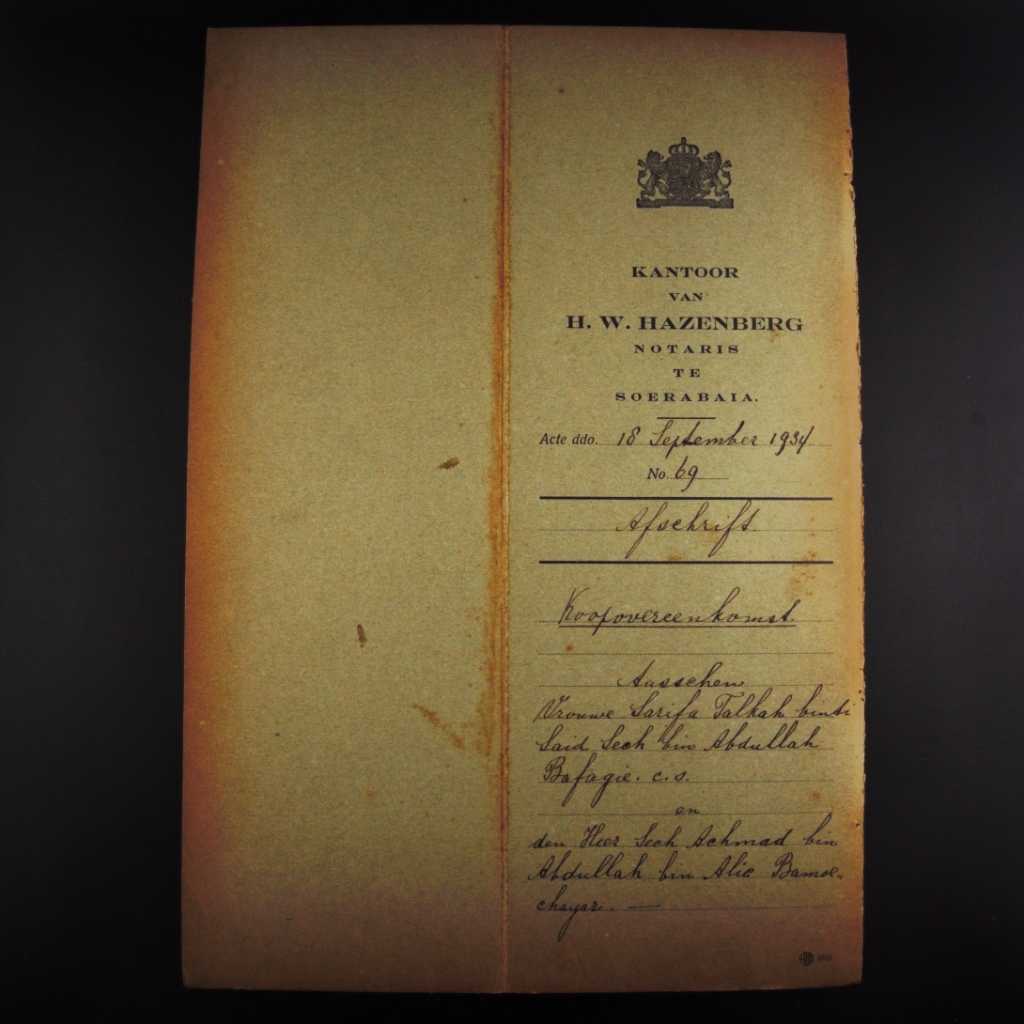 KANTOOR
VAN
H. W. HAZENBERG
NOTARIS
TE
SOERABAIA.
Acte ddo. 18 September 1934
No. 69
Afschrift
Koopovereenkomst.
Tusschen
Vrouwe Sarifa Talkah binti
Said Sech bin Abdullah
Bafagie. c.s.
en
den Heer Sech Achmad bin
Abdullah bin Alie Bamoe-
chayar. —